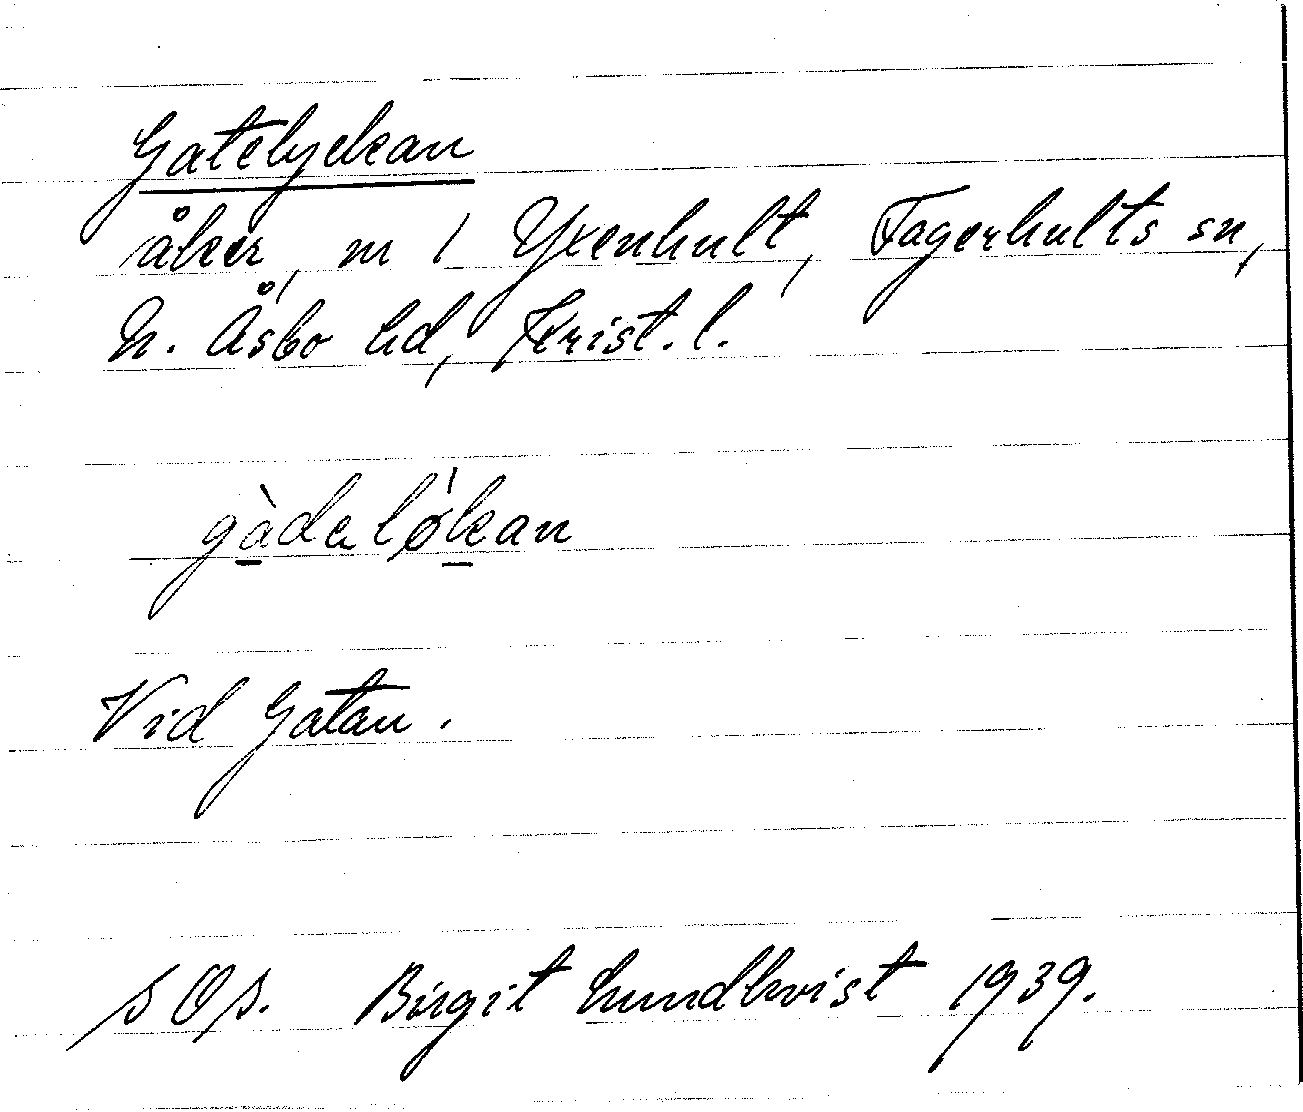 Gatelyckan
åker, m 1 Yxenhult, Fagerhults sn,
N. Åsbo hd, Krist. l.
gàdaløkan
Vid Gatan.
Birgit Lundkvist 1939.